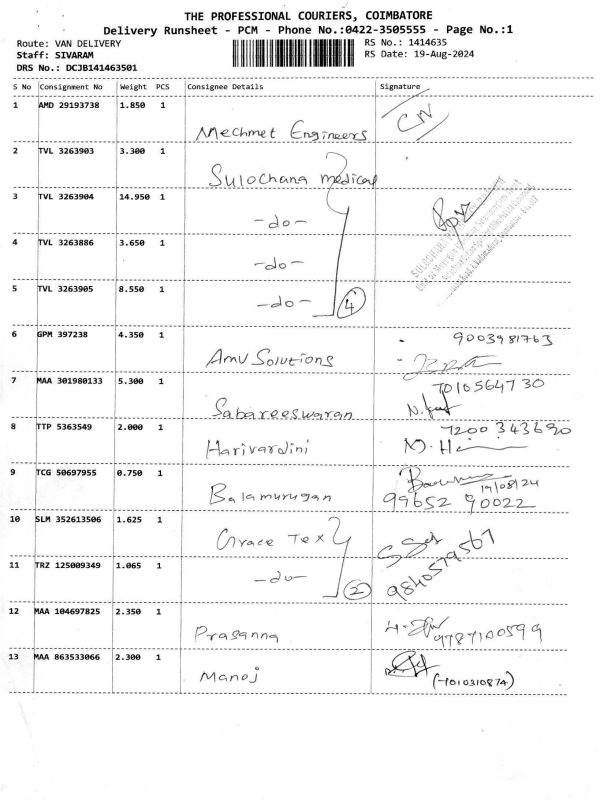 THE PROFESSIONAL COURIERS, COIMBATORE
Delivery Runsheet - PCM - Phone No.:0422-3505555 - Page No.:1
Route: VAN DELIVERY RS No.: 1414635
Staff: SIVARAM RS Date: 19-Aug-2024
DRS No.: DCJB141463501
S No Consignment No Weight PCS Consignee Details Signature
1 AMD 29193738 1.850 1
Mechmet Engineers
2 TVL 3263903 3.300 1
Sulochana medical
3 TVL 3263904 14.950 1
-do-
4 TVL 3263886 3.650 1
-do-
5 TVL 3263905 8.550 1
-do- 4
6 GPM 397238 4.350 1 9003981763
Amv Solutions
7 MAA 301980133 5.300 1 7010564730
Sabareeswaran
8 TTP 5363549 2.000 1 7200343690
Harivardini
9 TCG 50697955 0.750 1
19/08/24
Balamurugan 99652 90022
10 SLM 352613506 1.625 1
Grace Tex
11 TRZ 125009349 1.065 1 9840579567
-do- 2
12 MAA 104697825 2.350 1
Prasanna 9787100599
13 MAA 863533066 2.300 1
Manoj (7010310874)